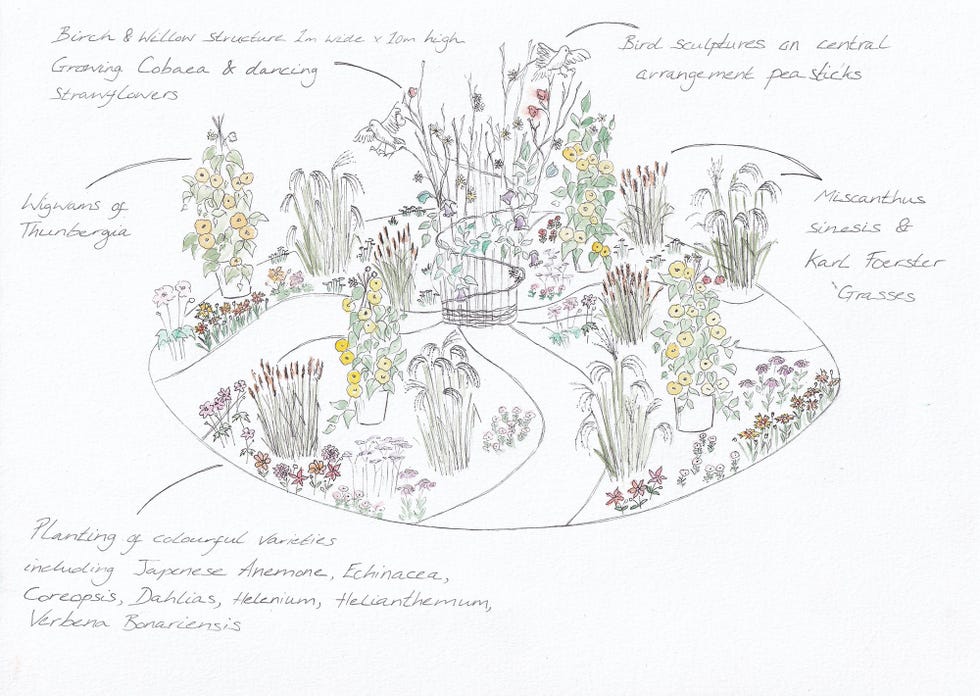 Birch & Willow structure 1m wide x 10m high
Growing Cobaea & dancing
strawflowers
Bird sculptures on central
arrangement pea sticks
Wigwams of
Thunbergia
Miscanthus
sinesis &
Karl Foerster
'Grasses
Planting of colourful varieties
including Japenese Anemone, Echinacea,
Coreopsis, Dahlias, Helenium, Helianthemum,
Verbena Bonariensis